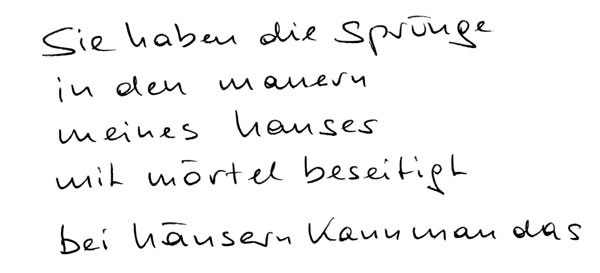 Sie haben die sprünge
in den mauern
meines hauses
mit mörtel beseitigt
bei häusern kann man das